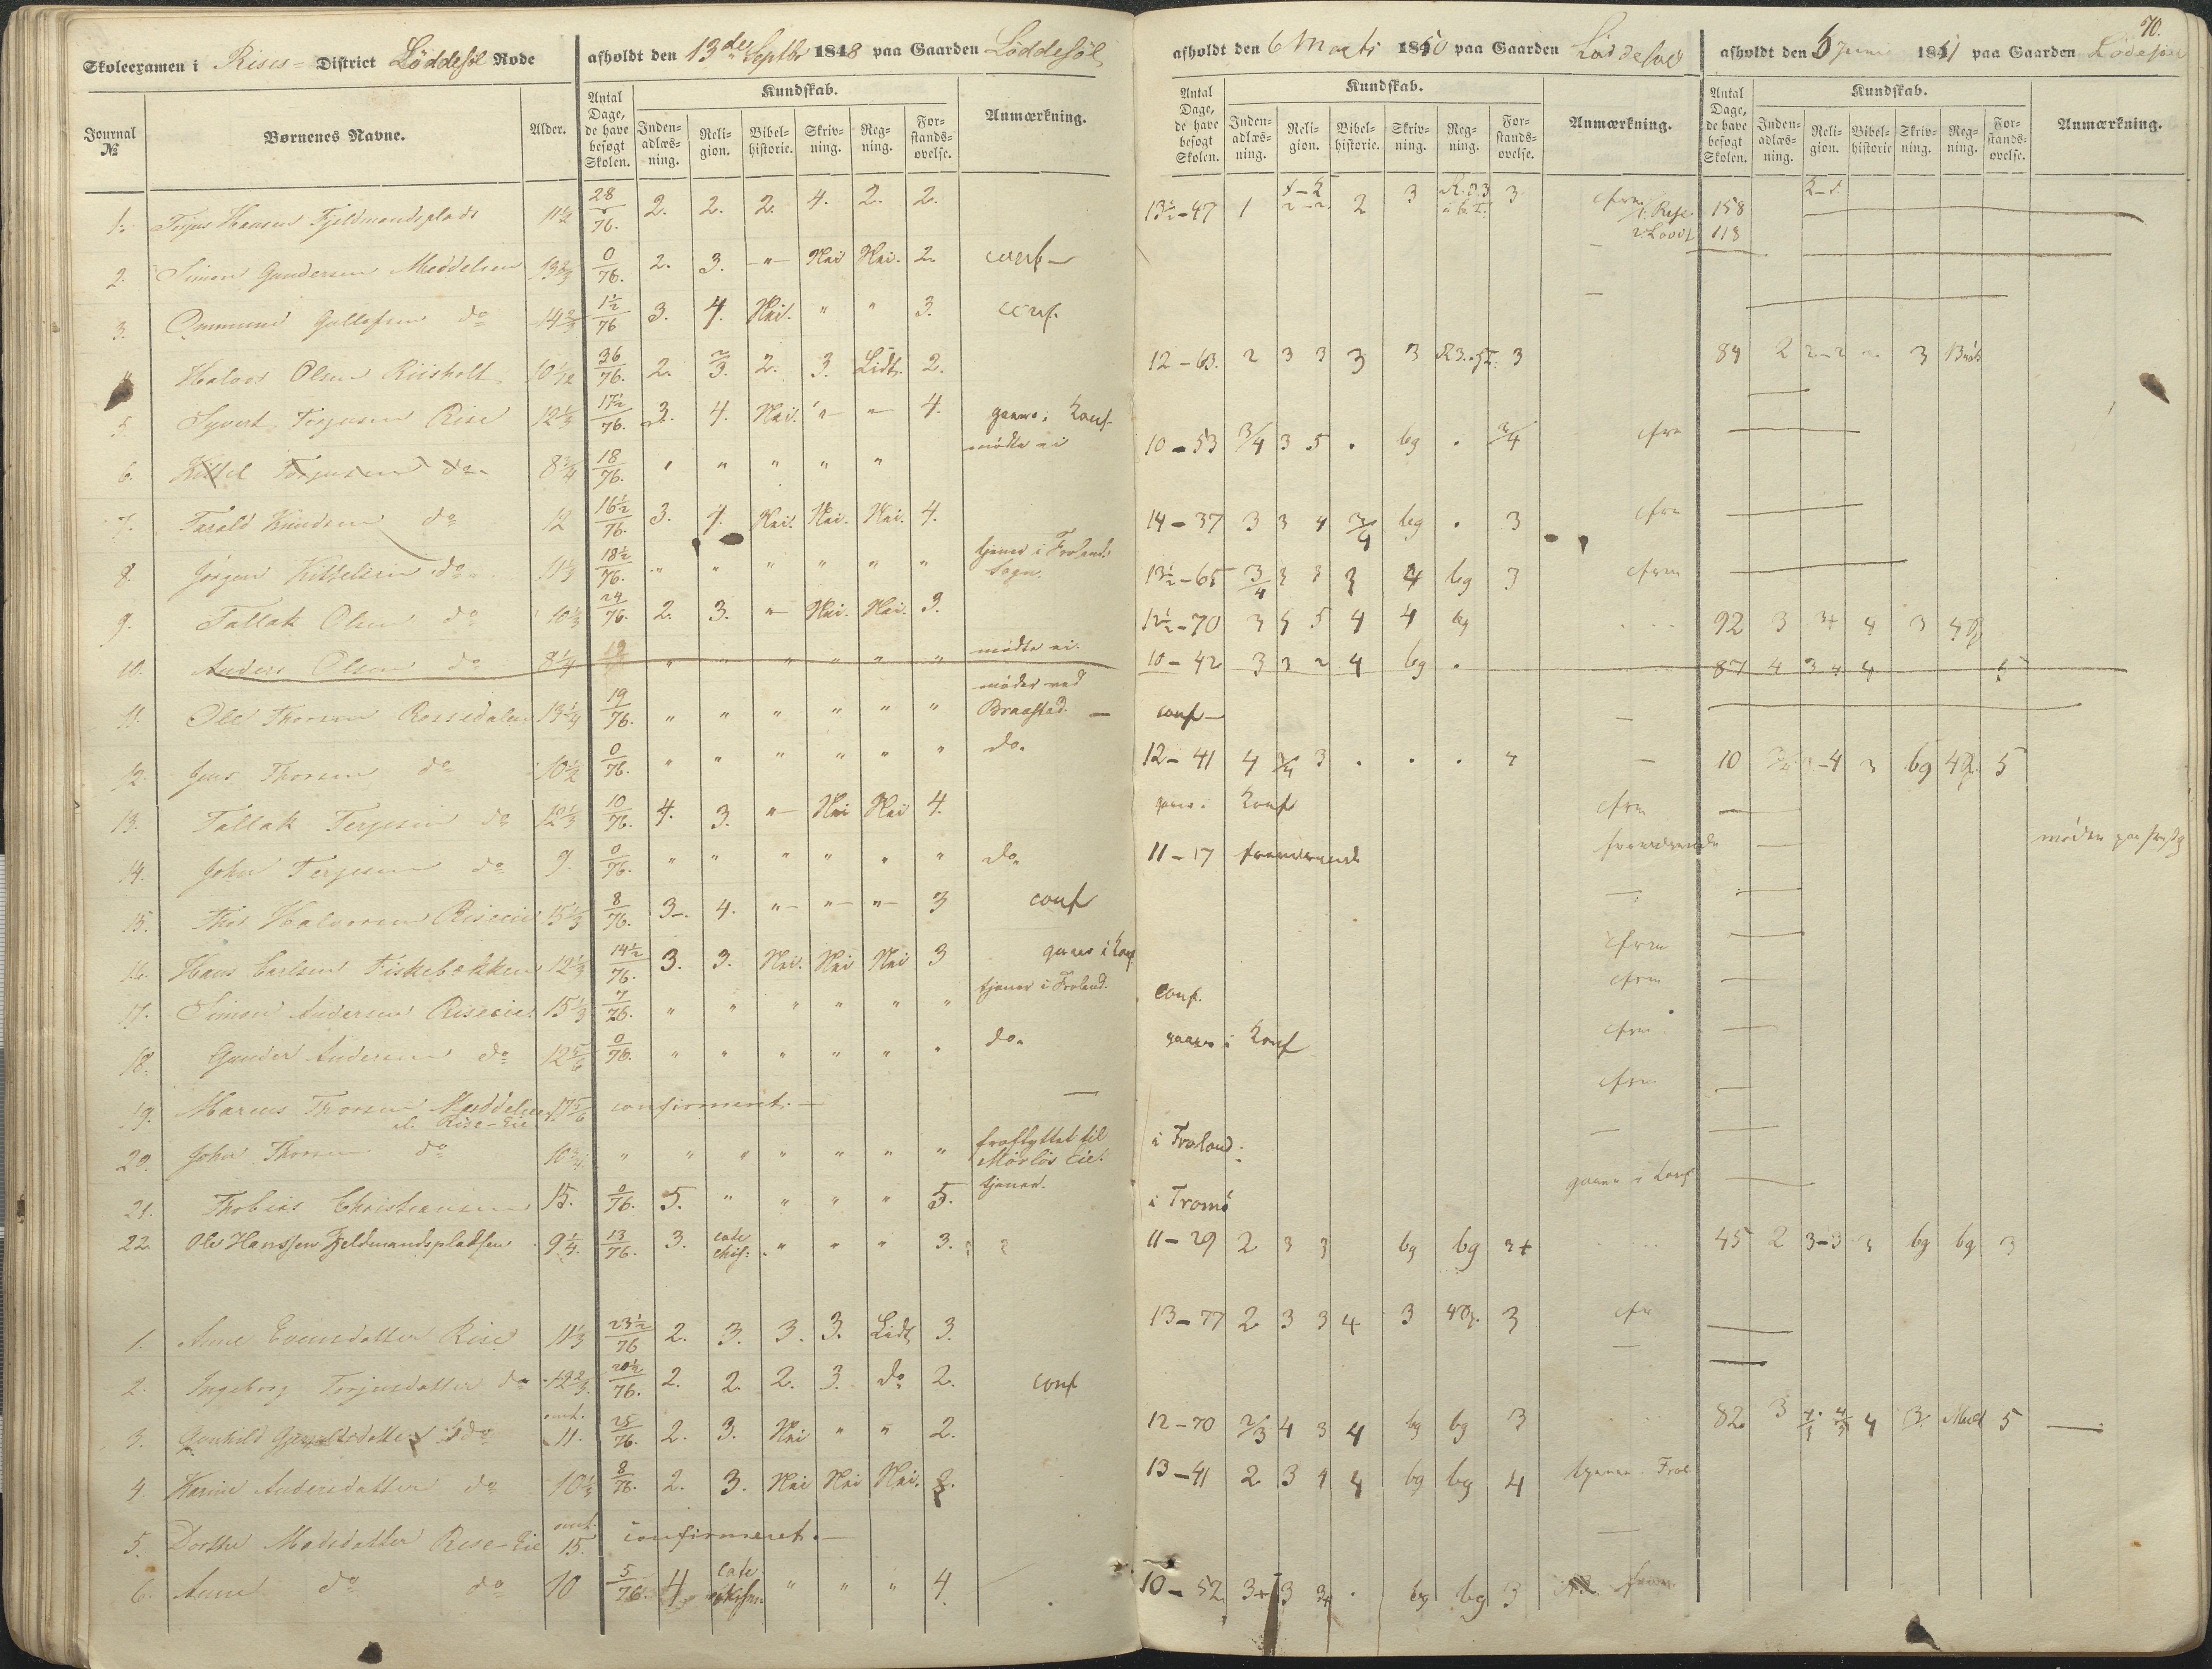 70.
Skoleexamen i Rises- District Löddesøl Rode afholdt den 13de Septbr 1848 paa Gaarden Löddesøl
afholdt den 6 Marts 1850 paa Gaarden Löddesøl
afholdt den 5 Juni 1851 paa Gaarden Lödesøl
Journal № Børnenes Navne. Alder. Antal Dage, de have besøgt Skolen. Kundskab. Inden-adlæs-ning. Reli-gion. Bibel-historie. Skriv-ning. Reg-ning. For-stands-øvelse. Anmærkning.
Antal Dage, de have besøgt Skolen. Kundskab. Inden-adlæs-ning. Reli-gion. Bibel-historie. Skriv-ning. Reg-ning. For-stands-øvelse. Anmærkning.
Antal Dage, de have besøgt Skolen. Kundskab. Inden-adlæs-ning. Reli-gion. Bibel-historie Skriv-ning. Reg-ning. For-stands-øvelse. Anmærkning.
1. Terjus Hansen Fjeldmandsplads 11½ 28/76. 2. 2. 2. 4. 2. 2. 13½-47 1 2 3 3 158 113
2. Simon Gundersen Meddelsen 13⅔ 0/76. 2. 3. -"- Nei Nei. 2. conf-
3. Ommund Gullofsen do 14⅔ 1½/76 3. 4. Nei. " " 3. conf.
Halvor Olsen Riisholt 10 1/12 36/76. 2. 2/3. 2. 3. Lidt. 2. 12-63. 2 3 3 3 3 3 84 2 2-2 2 3
5. Syvert Terjusen Rise 12⅓ 17½/76. 3. 4. Nei. "- "- 4. gaaer i Konf. 10-53 3/4 3 5 . bg . 3/4
6. Kittel Terjusen do 8¾ 18/76. " " " " " mødte ei
7. Tarald Knudsen do 12 16½/76. 3. 4. Nei. Nei. Nei. 4. 14-37 3 3 4 3/4 bg . 3
8. Jørgen Kittelsen do 11⅓ 18½/76. " " " " " " tjener i Frolands Sogn. 13½-65 3/4 3 3 3 4 bg 3
9. Tallak Olsen do 10⅓ 24/76. 2. 3. "- Nei. Nei. 3. 12½-70 3 5 5 4 4 bg 92 3 3+ 4 3
10. Anders Olsen do 8¼ " " " " " " mødte ei. 10-42 3 3 2 4 bg . 87 4 3 4 4 5
11. Ole Thorsen Rossedalen 13¼ 19/76. " " " " " " møder ved Braastad. - conf-
12. Jens Thorsen do 10½ 0/76. " " " " " " do. 12-41 4 3/4 3 . . . 4 10 -4 3 bg 5
13. Tallak Terjesen do 12⅓ 10/76. 4. 3. "- Nei Nei 4. gaaer i Konf
14. John Terjesen do 9. 0/76. " " " " " " do. 11-17 fraværende fraværende
15. Thor Halvorsen Riseeie 15⅓ 8/76. 3-. 4. "- "- "- 3 conf
16. Hans Carlsen Fiskebekken 12⅓ 14½/76. 3. 3. Nei. Nei Nei 3 gaaer i Konf.
17. Simon Andersen Riseeie. 15⅓ 7/76. " " " " " " tjener i Froland. conf.
18. Gunder Andersen do 12 5/6 0/76. " " " " " " do. gaaer i Konf
19. Marcus Thorsen Meddelsen el. Rise-Eie. 17 5/6 confirmeret.-
20. John Thorsen do 10¾ " " " " " " " fraflyttet til Mørløs Eie. i Froland.
21. Thobias Christiansen 15. 0/76. 5. " " " " 5. tjener. i Tromø gaaer i Konf
22. Ole Hanssen Fjeldmandspladsen 9¼. 13/76. 3. cate chis: " " " 3. 11-29 2 3 3 bg bg 3+ 45 2 3-3 3 bg bg 3
1. Anne Evensdatter Rise 11⅓ 23½/76 2. 3. 3. 3. Lidt 3. 13-77 2 3 3 4 3 3
2. Ingeborg Terjusdatter do 12⅔. 20½/76. 2. 2. 2. 3. do 2. conf
3. Gunhild do omt. 11. 25/76. 2. 3. Nei " " 2. 12-70 2/3 4 3 4 bg bg 3 82 3 4 5
4. Karine Andersdatter do 10⅓ 8/76. 2. 3. Nei Nei Nei. 13-41 2 3 4 4 bg bg 4
5. Dorthe Madsdatter Rise-Eie omt. 15. confirmeret.-
6. Anne do do 10 5/76. 4 Cate " " " 4. 10-52 3+ 3 . bg bg 3